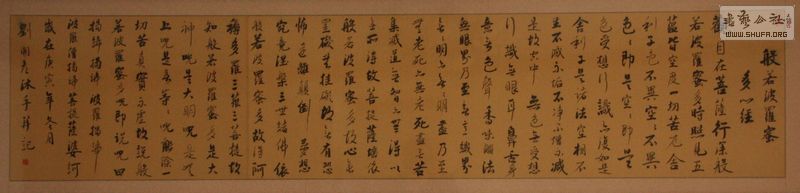 书艺公社
WWW.SHUFA.ORG
般若波羅蜜
多心經
觀自在菩薩行深般
若波羅蜜多時照見五
蘊皆空度一切苦厄舍
利子色不異空空不異
色色即是空空即是
色受想行識亦復如是
舍利子是諸法空相不
生不滅不垢不淨不增不減
是故空中無色無受想
行識無眼耳鼻舌身
意無色聲香味觸法
無眼界乃至無意識界
無無明亦無無明盡乃至
無老死亦無老死盡無苦
集滅道無智亦無得以
無所得故菩提薩埵依
般若波羅蜜多故心無
罣礙無罣礙故無有恐
怖遠離顛倒夢想
究竟涅槃三世諸佛依
般若波羅蜜多故得阿
耨多羅三藐三菩提故
知般若波羅蜜多是大
神咒是大明咒是無
上咒是無等等咒能除一
切苦真實不虛故說般
若波羅蜜多咒即說咒曰
揭諦揭諦波羅揭諦
波羅僧揭諦菩提薩婆訶
歲在庚寅年冬月
劉明沐手拜記